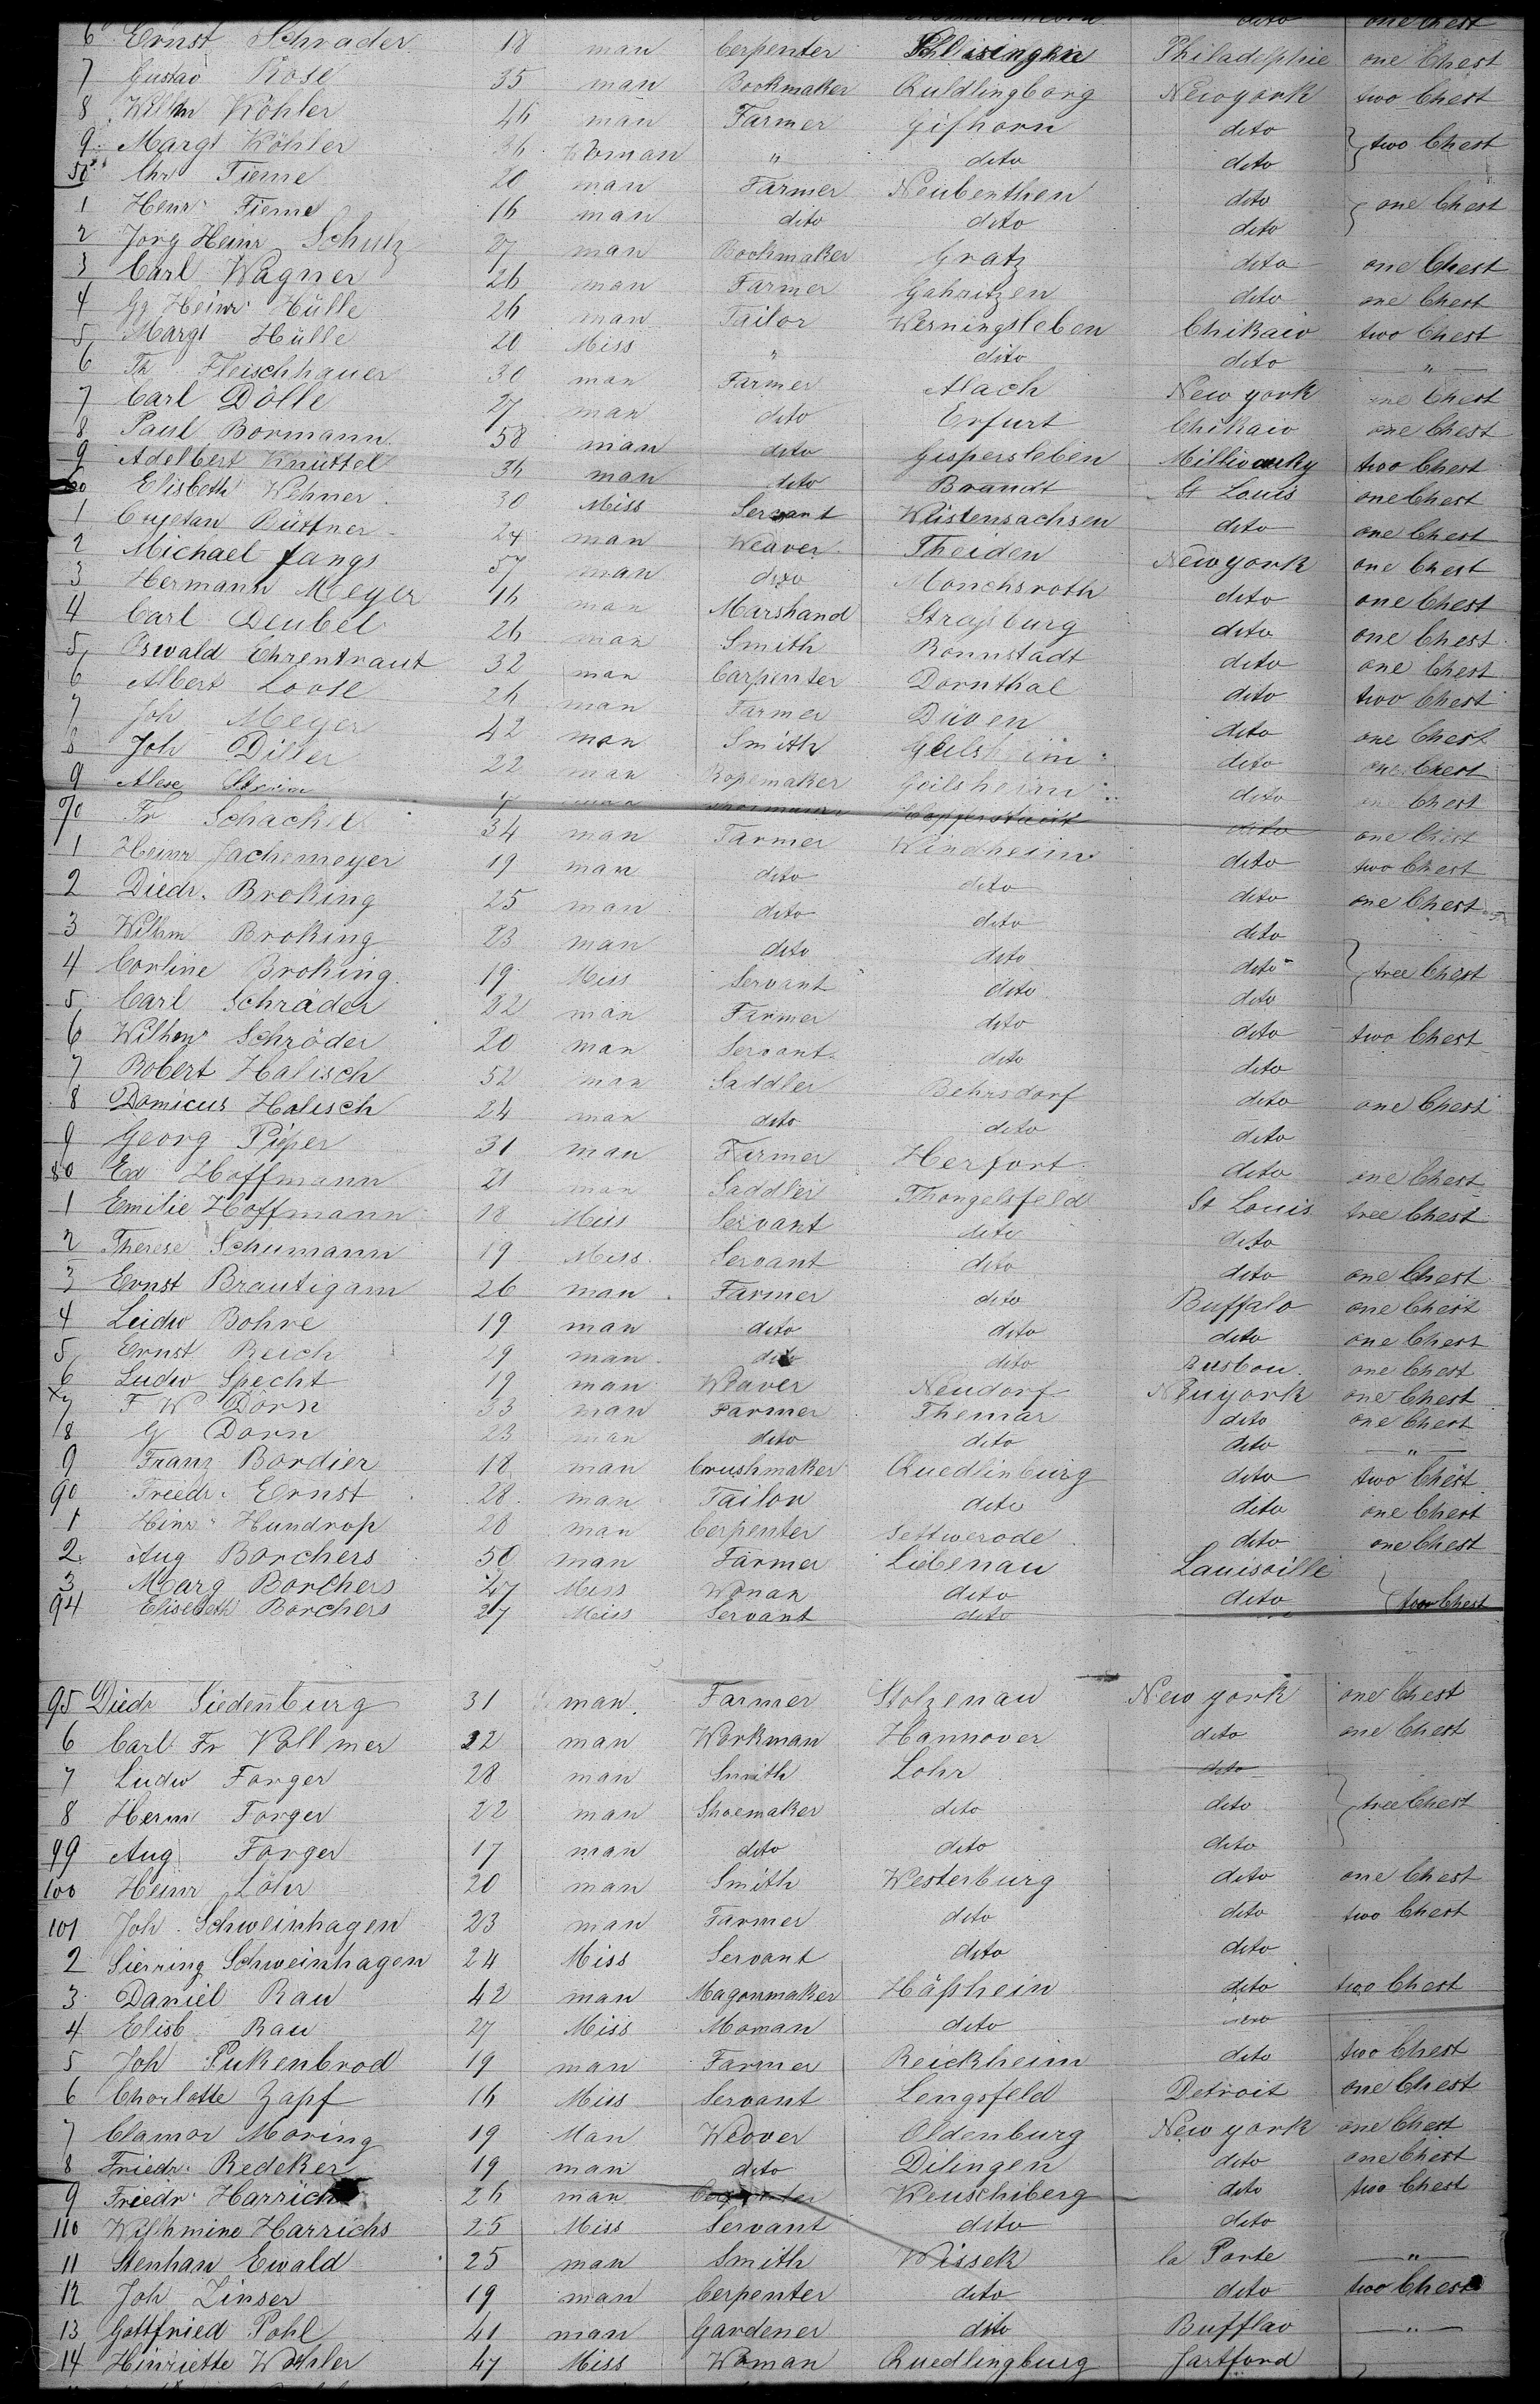 dito one Chest
6 Ernst Schrader 18 man Cerpenter Schleisingen Philadelphie one Chest
7 Gustav Rose 35 man Bookmaker Quldlingborg Newyork two Chest
8 Willm Köhler 46 man Farmer Gifhorn dito } two Chest
9 Margt Köhler 36 Woman " dito dito
50 Chr Tieme 20 man Farmer Neubenthen dito } one Chest
1 Henr Tieme 16 man dito dito dito
2 Jorg Heinr Schulz 27 man Bookmaker Gratz dito one Chest
3 Carl Wagner 26 man Farmer Gahritzen dito one Chest
4 Gg Heinr Hülle 26 man Tailor Werningsleben Chikaio two Chest
5 Margt Hülle 20 Miss " dito dito "
6 Th Fleischhauer 30 man Farmer Alach New york one Chest
7 Carl Dölle 27 man dito Erfurt Chikaio one Chest
8 Paul Bormann 58 man dito Gispersleben Milliwauky two Chest
9 Adelbert Knüttel 36 man dito Brandt St Louis one Chest
60 Elisbeth Wehner 30 Miss Servant Wüstensachsen dito one Chest
1 Cajetan Büttner 24 man Weaver Theiden Newyork one Chest
2 Michael Jangs 57 man dito Monchsroth dito one Chest
3 Hermann Meyer 16 man Marshand Straßburg dito one Chest
4 Carl Deubel 26 man Smith Ronnstadt dito one Chest
5 Oswald Ehrentraut 32 man Carpenter Dornthal dito two Chest
6 Albert Loose 26 man Farmer Düven dito one Chest
7 Joh Meyer 42 man Smith Geilsheim dito one Chest
8 Joh Diller 22 man Ropemaker Geilsheim dito one Chest
9 Alex man dito one Chest
70 Fr Schacke 34 man Farmer Windheim dito two Chest
1 Heinr Jachemeyer 19 man dito dito dito one Chest
2 Diedr. Broking 25 man dito dito dito
3 Wilhm Broking 23 man dito dito dito } tree Chest
4 Corline Broking 19 Miss Servant dito dito
5 Carl Schräder 22 man Farmer dito dito two Chest
6 Wilhm Schröder 20 man Servant dito dito
7 Robert Halisch 52 man Saddler Behrsdorf dito one Chest
8 Domicus Halisch 24 man dito dito dito
9 Georg Pieper 31 man Farmer Herfort dito one Chest
80 Ed Hoffmann 21 man Saddler Thongelsfeld St Louis tree Chest
1 Emilie Hoffmann 18 Miss Servant dito dito
2 Therese Schumann 19 Miss Servant dito dito one Chest
3 Ernst Brautigam 26 man Farmer dito Buffalo one Chest
4 Leidw Bohre 19 man dito dito dito one Chest
5 Ernst Reich 29 man dito dito Busbou one Chest
6 Ludw Specht 19 man Weaver Neudorf Neuyork one Chest
7 F W Dörn 33 man Farmer Themar dito one Chest
8 G Dorn 23 man dito dito dito "
9 Franz Bordier 18 man Crushmaker Quedlinburg dito two Chest
90 Freedr. Ernst 28 man Tailor dito dito one Chest
1 Hinr Hundrop 28 man Cerpenter Settwerode dito one Chest
2 Aug Borchers 50 man Farmer Liebenau Lauisville
3 Marg Borchers 47 Miss Woman dito dito } two Chest
94 Elisebeth Borchers 27 Miss Servant dito
95 Diedr Siedenburg 31 man Farmer Stolzenau New york one Chest
6 Carl Fr Vollmer 22 man Workman Hannover dito one Chest
7 Ludw Forger 28 man Smith Lohr dito } tree Chest
8 Herm Forger 22 man Shoemaker dito dito
99 Aug Forger 17 man dito dito dito
100 Heinr Löhr 20 man Smith Westerburg dito one Chest
101 Joh Schweinhagen 23 man Farmer dito dito two Chest
2 Sierring Schweinhagen 24 Miss Servant dito dito
3 Daniel Rau 42 man Magonmaker Häßhein dito two Chest
4 Elisb Rau 27 Miss Moman dito dito
5 Joh Pukenbrod 19 man Farmer Reickheim dito two Chest
6 Chorlotte Zapf 16 Miss Servant Lengsfeld Detroit one Chest
7 Clamor Moring 19 Man Weover Oldenburg New york one Chest
8 Friedr. Redeker 19 man dito Dilingen dito one Chest
9 Friedr Harrichs 26 man Cerpenter Weuschiberg dito two Chest
110 Wilhmine Harrichs 25 Miss Servant dito dito
11 Stenhan Ewald 25 man Smith Wissek la Porte "
12 Joh Zinser 19 man Cerpenter dito dito two Chest
13 Gottfried Pohl 41 man Gardener dito Bufflao "
14 Hinriette Wohler 47 Miss Woman Quedlingburg Jartford